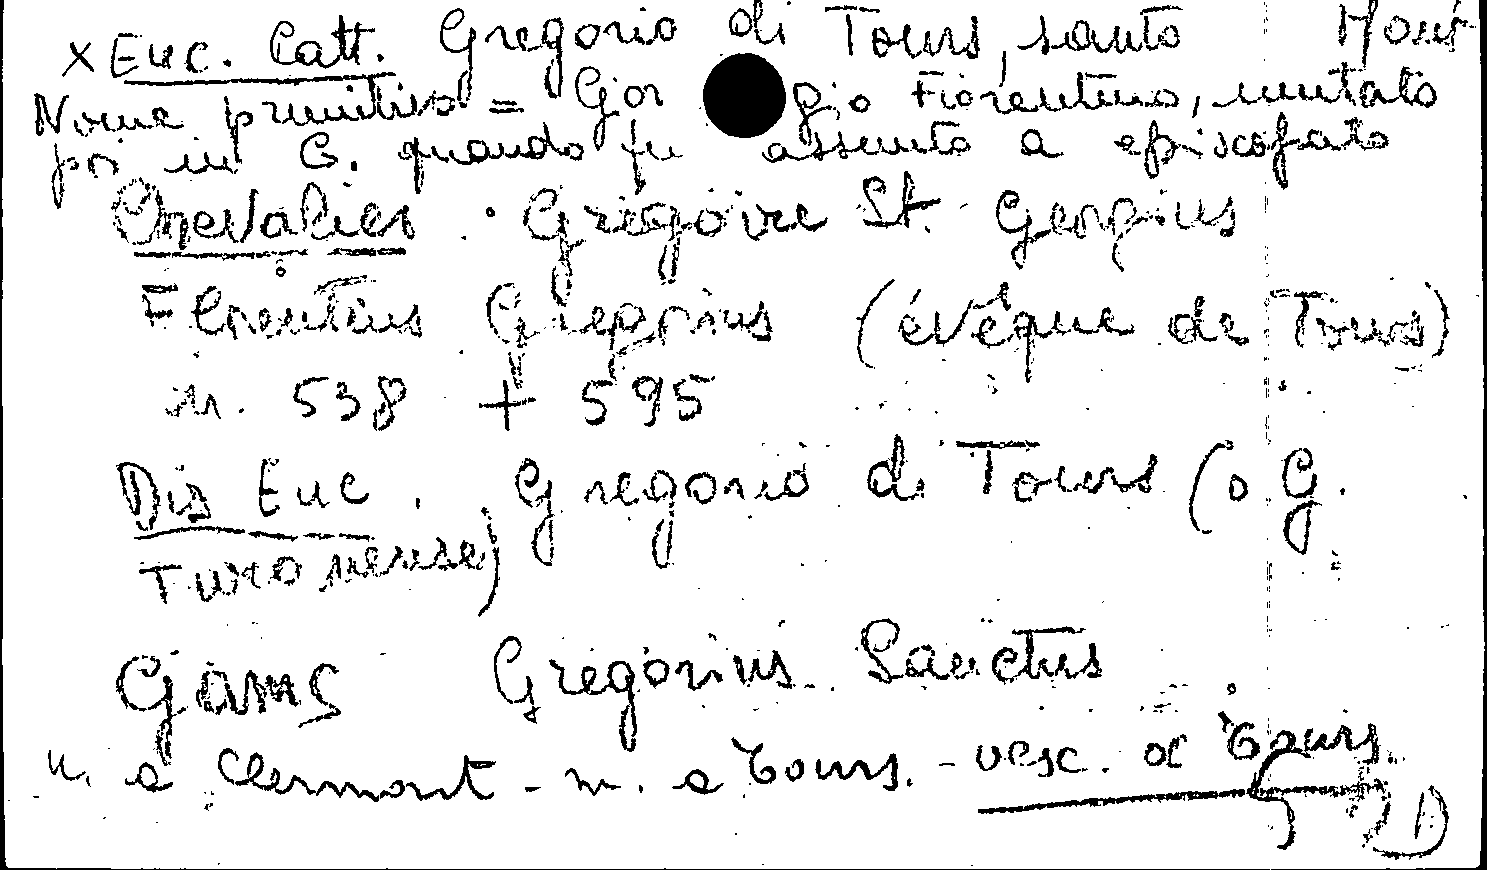 x Enc. Catt. Gregorio di Tours, santo
Nome primitivo = Giorgio Fiorentino, mutato
poi in G. quando fu assunto a episcopato
Chevalier. Grégoire St. Georgius
Florentius Gregorius (évêque de Tours)
n. 538 + 595
Dis Enc. Gregorio di Tours (o G.
Turonense)
Gams Gregorius Sanctus
n. a Clermont - m. a Tours. - vesc. di Tours.